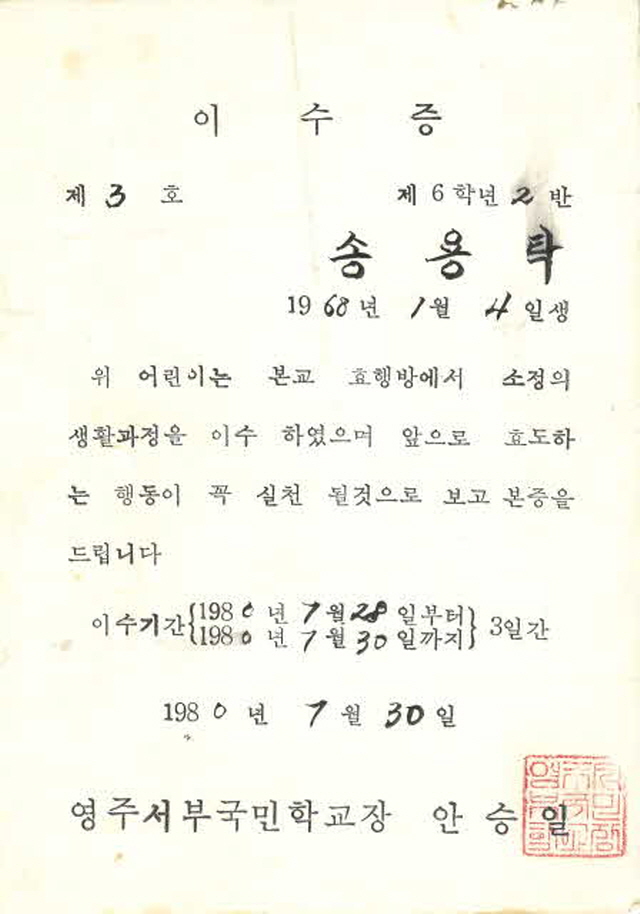 이 수 증
제 3 호 제 6 학년 2 반
송 용 탁
19 68 년 1 월 4 일생
위 어린이는 본교 효행방에서 소정의
생활과정을 이수 하였으며 앞으로 효도하
는 행동이 꼭 실천 될것으로 보고 본증을
드립니다
이수기간 {198 0 년 7 월 28 일부터} 3일간
{198 0 년 7 월 30 일까지}
198 0 년 7 월 30 일
영주서부국민학교장 안 승 일